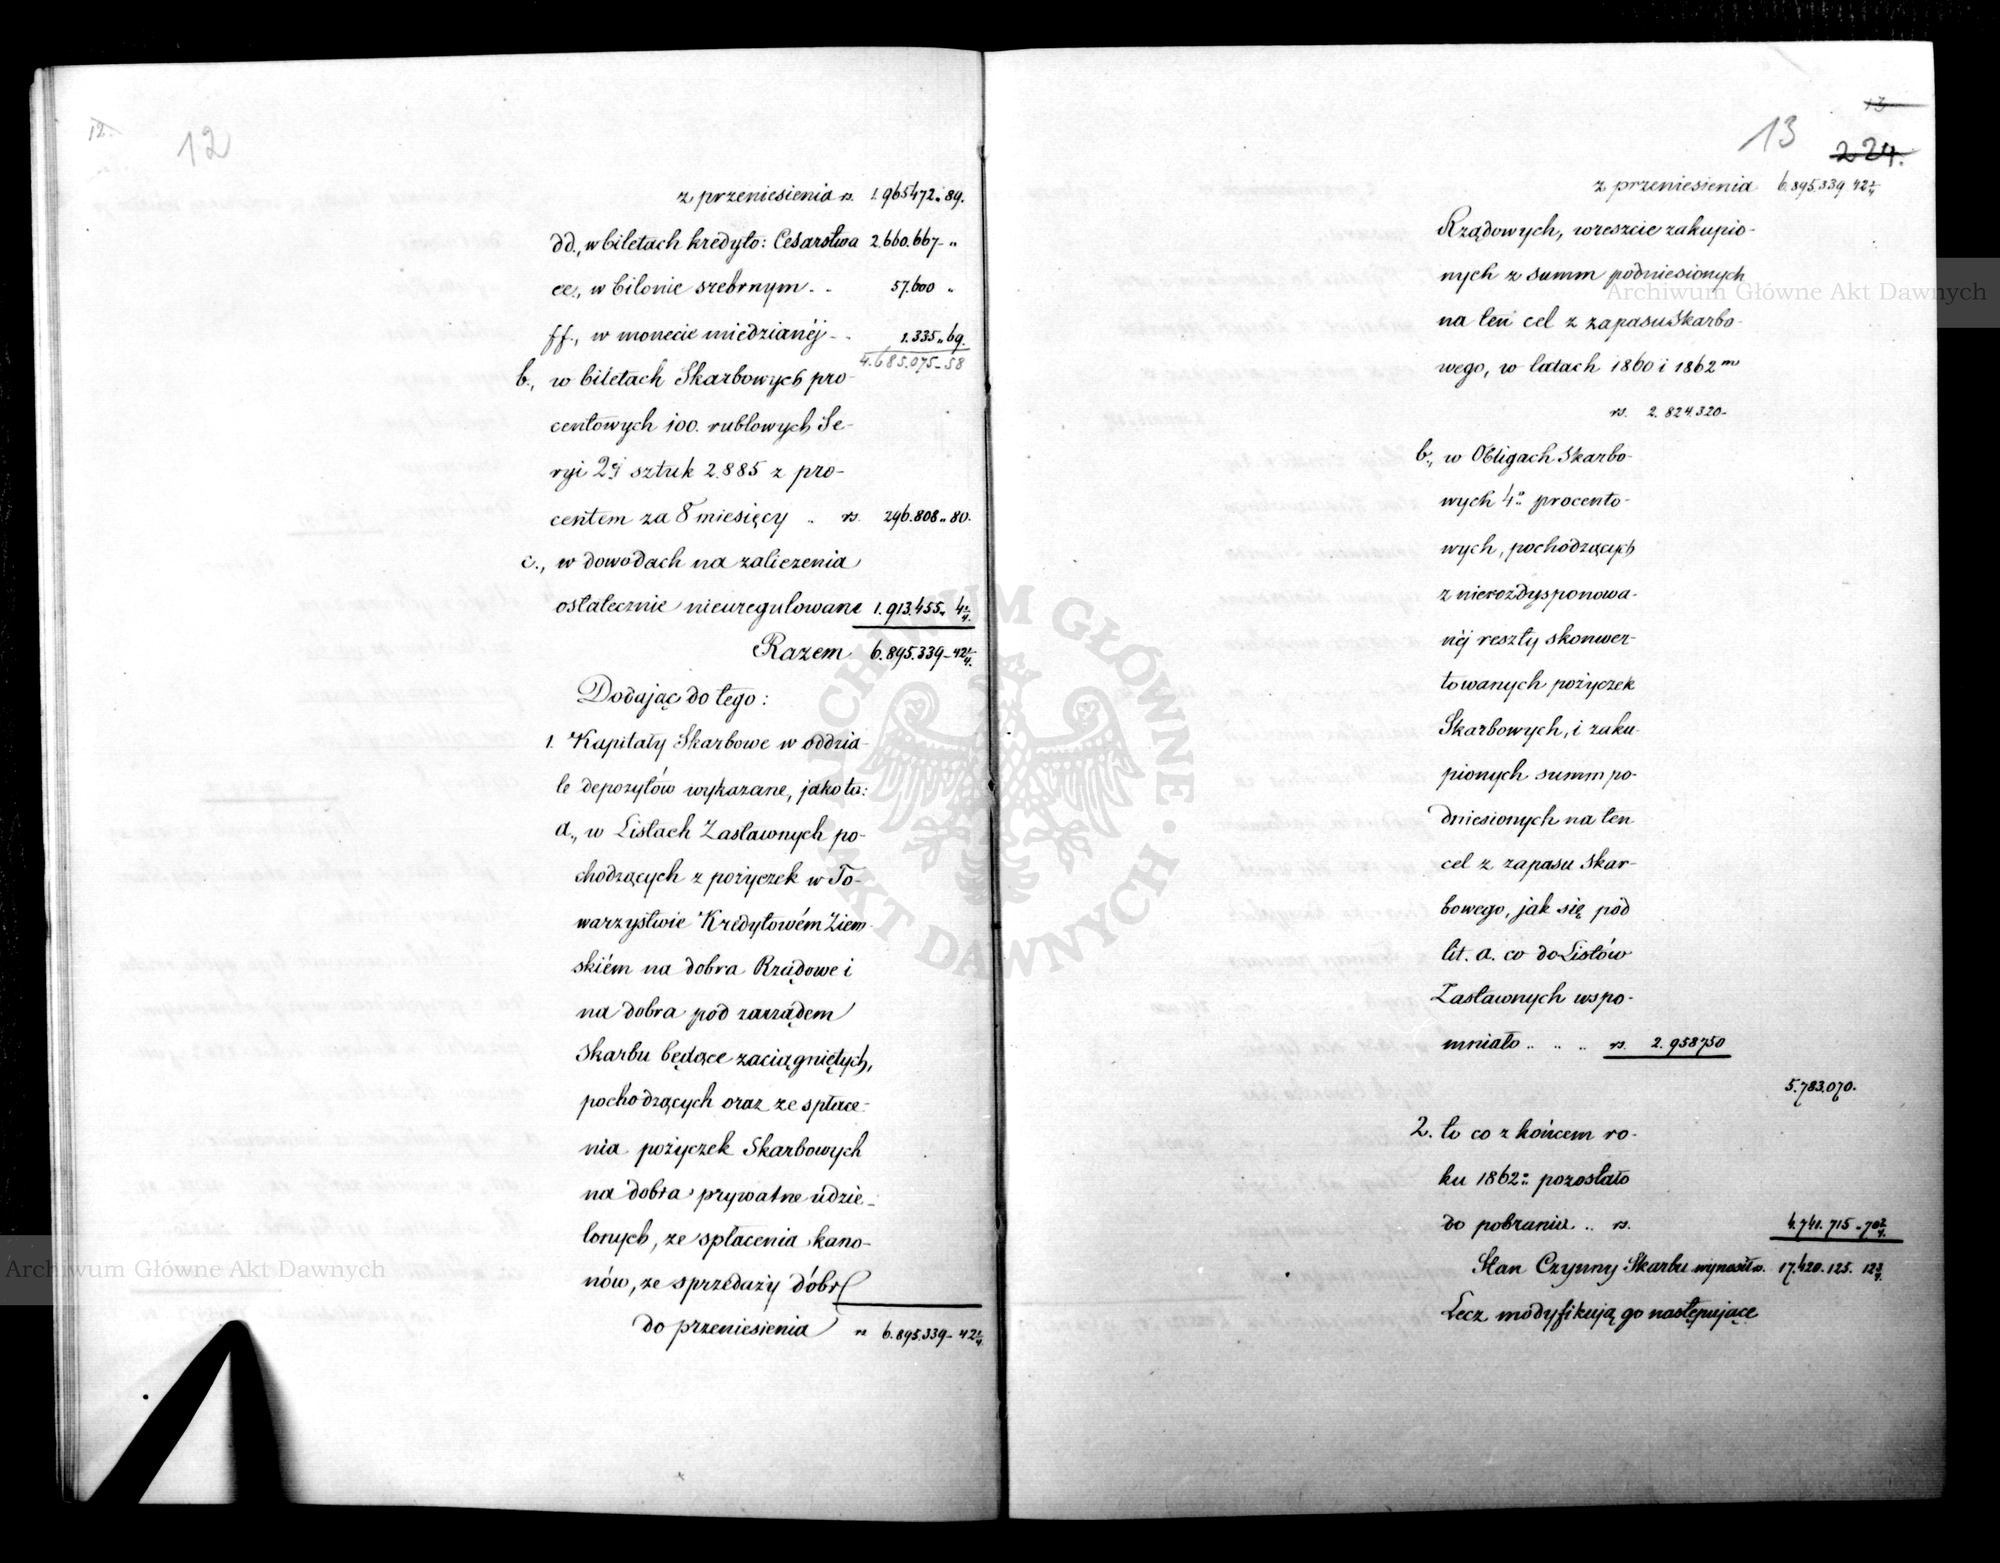 12.
12
z przeniesienia rs. 1.965472.. 89.
dd., w biletach kredyto: Cesarstwa 2.660.667- "
ee., w bilonie srebrnym - - 57.600 "
ff., w monecie miedzianéj - - 1.335.. 69.
4.685.075-58
b., w biletach Skarbowych pro-
centowych 100. rublowych Se-
ryi 2éj sztuk 2.885 z pro-
centem za 8 miesięcy .. rs. 296.808.. 80.
c., w dowodach na zaliczenia
ostatecznie nieuregulowane 1.913.455..
Razem 6.895.339-
Dodając do tego:
1. Kapitały Skarbowe w oddzia-
le depozytów wykazane, jako to:
a., w Listach Zastawnych po-
chodzących z pożyczek w To-
warzystwie Kredytowém Ziem-
skiém na dobra Rządowe i
na dobra pod zarządem
Skarbu będące zaciągniętych,
pochodzących oraz ze spłace-
nia pożyczek Skarbowych
na dobra prywatne udzie-
lonych, ze spłacenia kano-
nów, ze sprzedaży dóbr
do przeniesienia rs 6.895.339-
13
13
224.
z przeniesienia 6.895.339
Rządowych, wreszcie zakupio-
nych z summ podniesionych
na ten cel z zapasu Skarbo-
wego, w latach 1860 i 1862 m
rs. 2.824.320-
b., w Obligach Skarbo-
wych 4o procento-
wych, pochodzących
z nierozdysponowa-
néj reszty skonwer-
towanych pożyczek
Skarbowych, i zaku-
pionych summ po-
dniesionych na ten
cel z zapasu Skar-
bowego, jak się pod
lit. a. co do Listów
Zastawnych wspo-
mniało .. .. .. rs. 2.958750
5.783.070.
2. to co z końcem ro-
ku 1862o pozostało
do pobrania .. rs. 4.741.715..
Stan Czynny Skarbu wynosił rs. 17.420.125.
Lecz modyfikują go następujące
Archiwum Główne Akt Dawnych
Archiwum Główne Akt Dawnych
ARCHIWUM GŁÓWNE AKT DAWNYCH